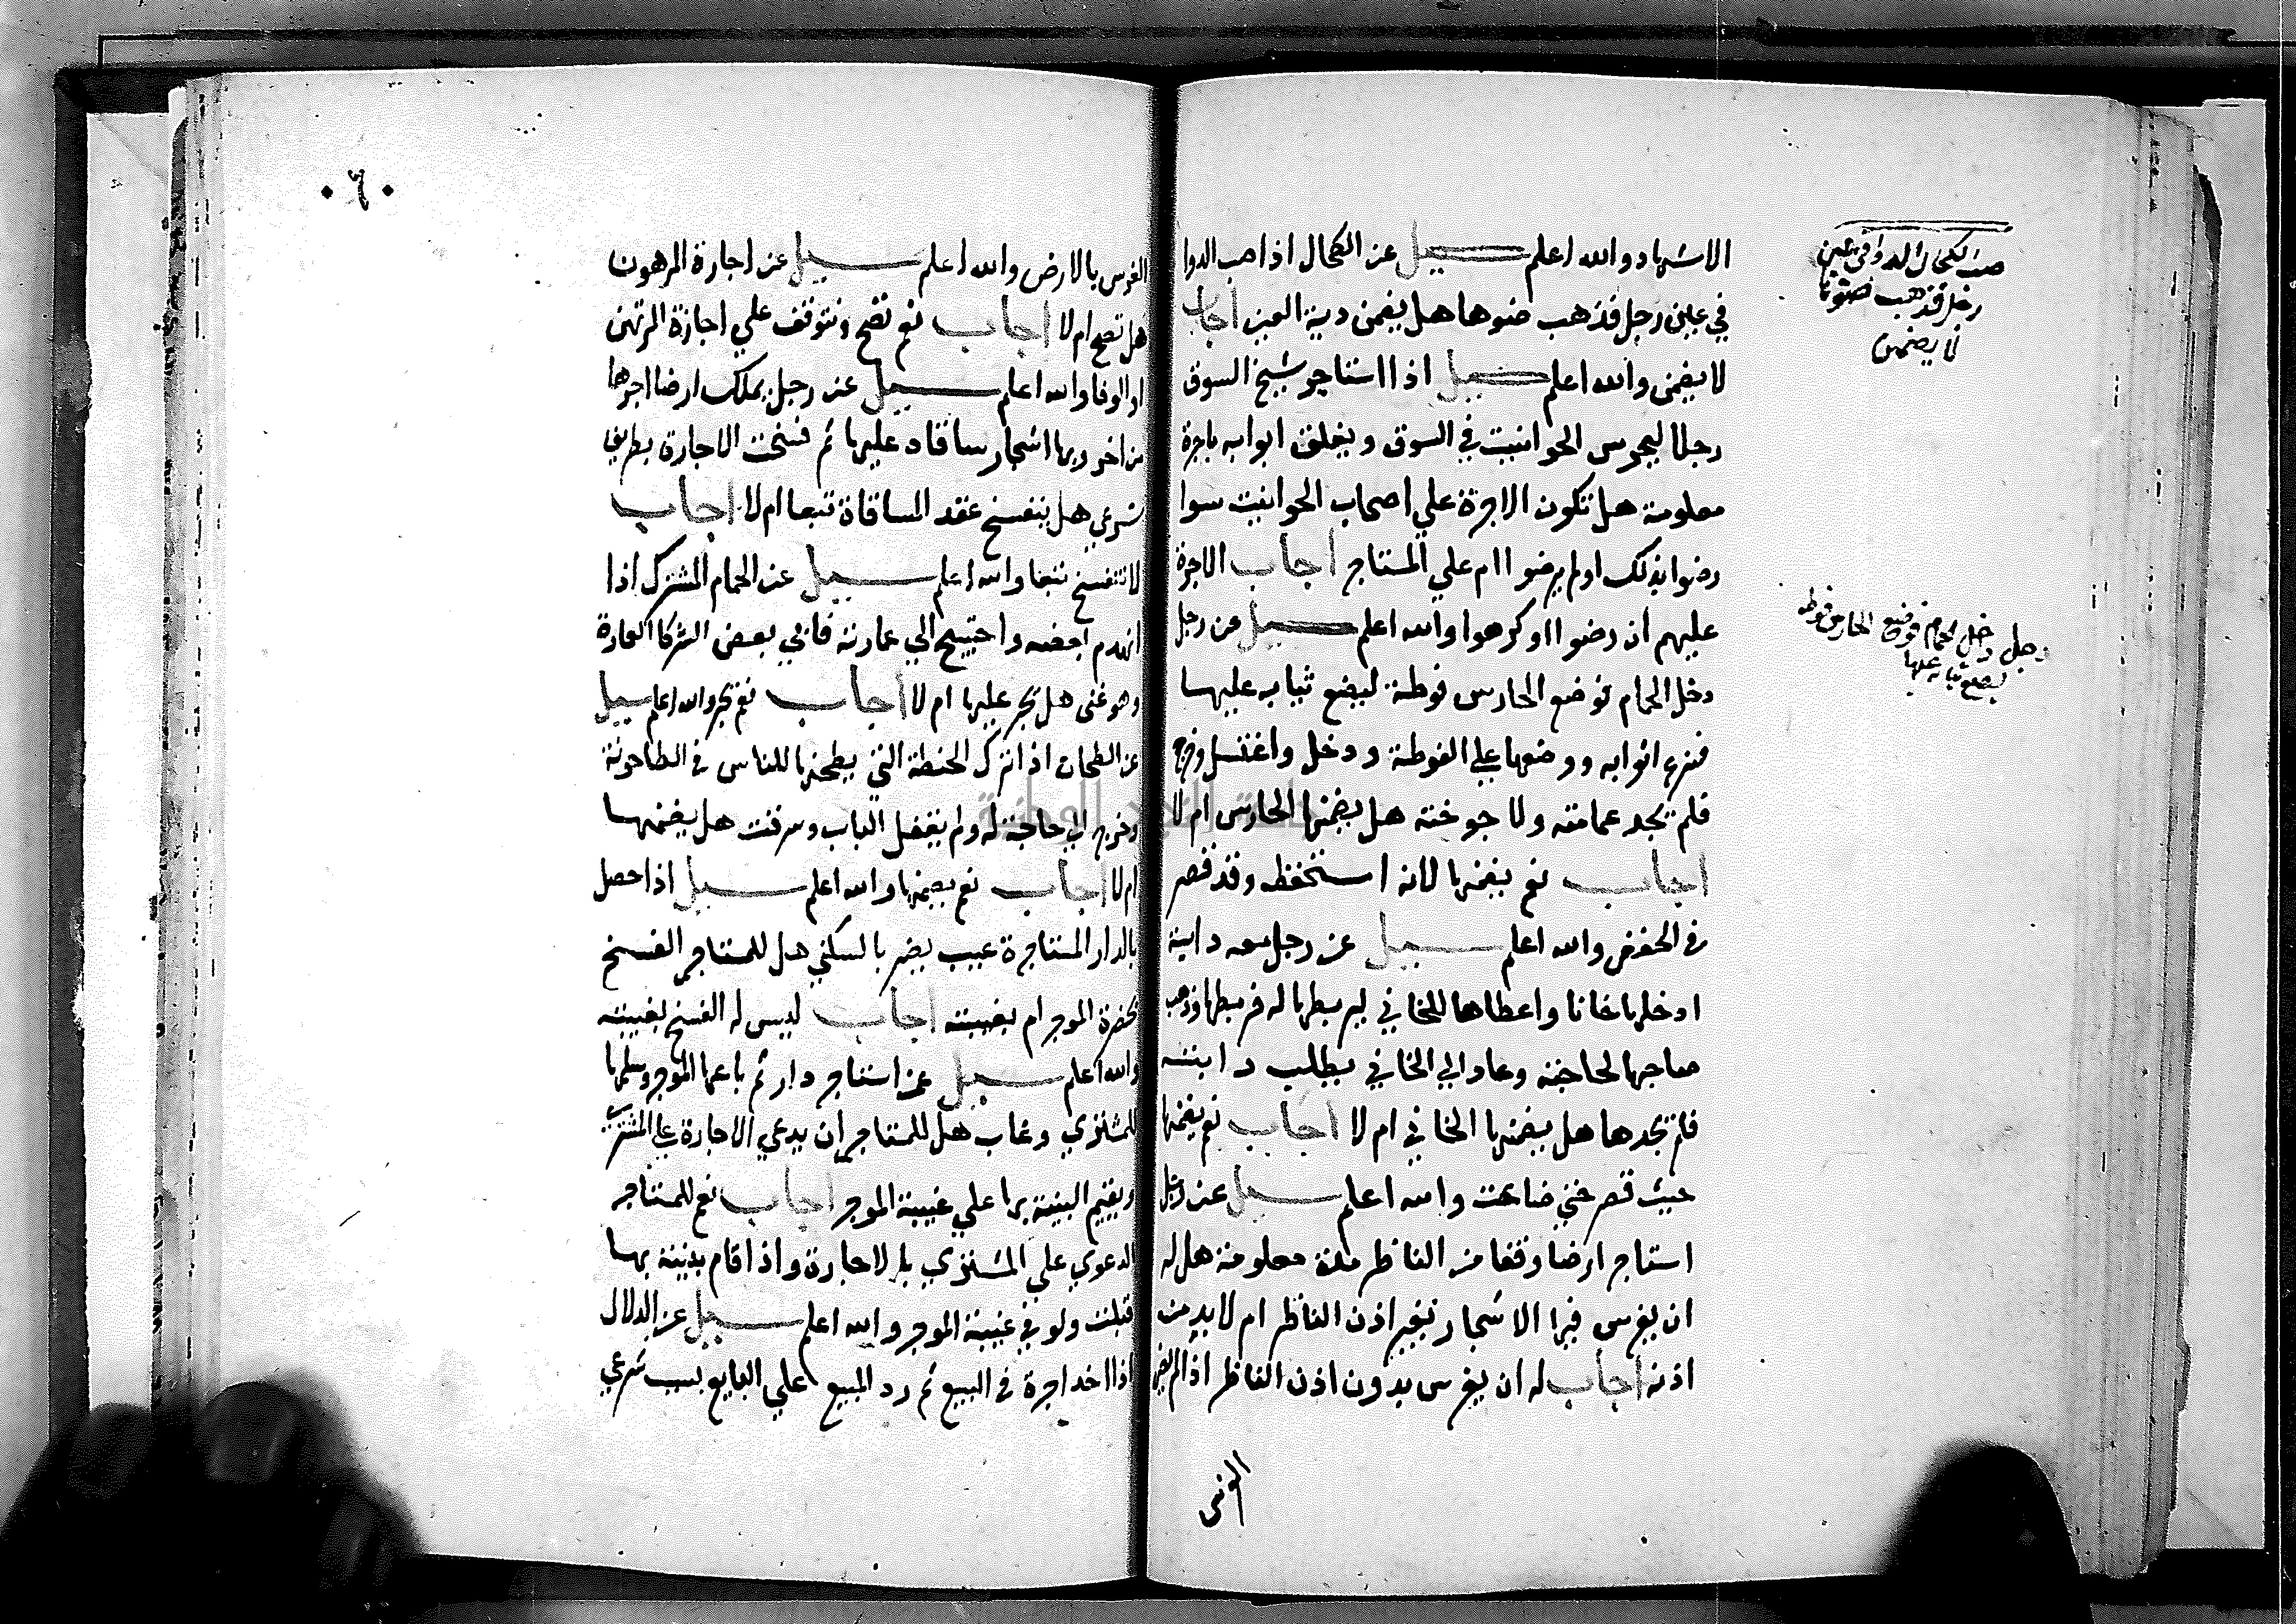 الاشهاد والله اعلم سيل عن الكحال اذا صب الدوا
في عين رجل فذهب ضوها هل يضمن دية العين اجاب
لا يضمن والله اعلم سيل اذا استاجر شيخ السوق
رجلا ليحرس الحوانيت في السوق ويغلق ابوابه باجرة
معلومة هل تكون الاجرة علي اصحاب الحوانيت سوا
رضوا بذلك او لم يرضوا ام علي المستاجر اجاب الاجرة
عليهم ان رضوا او كرهوا والله اعلم سيل عن رجل
دخل الحمام فوضع الحارس فوطة ليضع ثيابه عليها
فنزع اثوابه ووضعها علي الفوطة ودخل واغتسل وخرج
فلم يجد عمامته ولا جوخته هل يضمنها الحارس ام لا
اجاب نعم يضمنها لانه استحفظ وقد قصر
في الحفض والله اعلم سيل عن رجل معه دابة
ادخلها خانا واعطاها للخاني ليربطها له فربطها وذهب
صاحبها لحاجته وعاد الي الخاني يطلب دابته
فلم يجدها هل يضمنها الخاني ام لا اجاب نعم يضمنها
حيث قصر حتي ضاعت والله اعلم سيل عن رجل
استاجر ارضا وقفا من الناظر مدة معلومة هل له
ان يغرس فيها الاشجار بغير اذن الناظر ام لا بد من
اذنه اجاب له ان يغرس بدون اذن الناظر اذا لم يضر
الغرس
صب الكحال الدوا في عين
رجل فذهب ضوها
لا يضمن
رجل دخل الحمام فوضع الحارس فوطه
ليضع ثيابه عليها
٠٦٠
الغرس بالارض والله اعلم سيل عن اجارة المرهون
هل تصح ام لا اجاب نعم تصح وتتوقف علي اجازة المرتهن
او الوفا والله اعلم سيل عن رجل يملك ارضا اجرها
من اخر وبها اشجار ساقاه عليها ثم فسخت الاجارة بطريق
شرعي هل ينفسخ عقد المساقاة تبعا ام لا اجاب
لا تنفسخ تبعا والله اعلم سيل عن الحمام المشترك اذا
انهدم بعضه واحتيج الي عمارته فابي بعض الشركا العمارة
وهو غني هل يجبر عليها ام لا اجاب نعم يجبر والله اعلم سيل
عن الطحان اذا ترك الحنطة التي يطحنها للناس في الطاحونة
وخرج الي حاجة له ولم يقفل الباب وسرقت هل يضمنها
ام لا اجاب نعم يضمنها والله اعلم سيل اذا حصل
بالدار المستاجرة عيب يضر بالسكني هل للمستاجر الفسخ
بحضرة الموجر ام بغيبته اجاب ليس له الفسخ بغيبته
والله اعلم سيل عن استاجر دار ثم باعها الموجر وسلمها
للمشتري وغاب هل للمستاجر ان يدعي الاجارة علي المشتري
ويقيم البينة بها علي غيبة الموجر اجاب نعم للمستاجر
الدعوي علي المشتري بالاجارة واذا اقام بينة بها
قبلت ولو في غيبة الموجر والله اعلم سيل عن الدلال
اذا اخذ اجرة في البيع ثم رد المبيع علي البايع بسبب شرعي